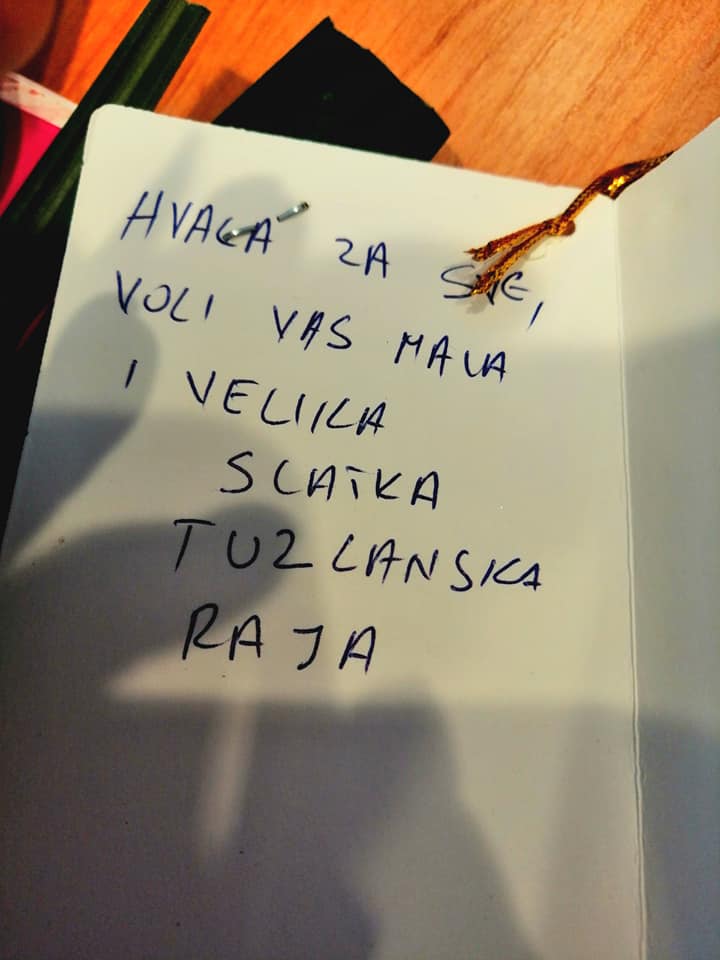 HVALA ZA SVE,
VOLI VAS MALA
I VELIKA
SLATKA
TUZLANSKA
RAJA